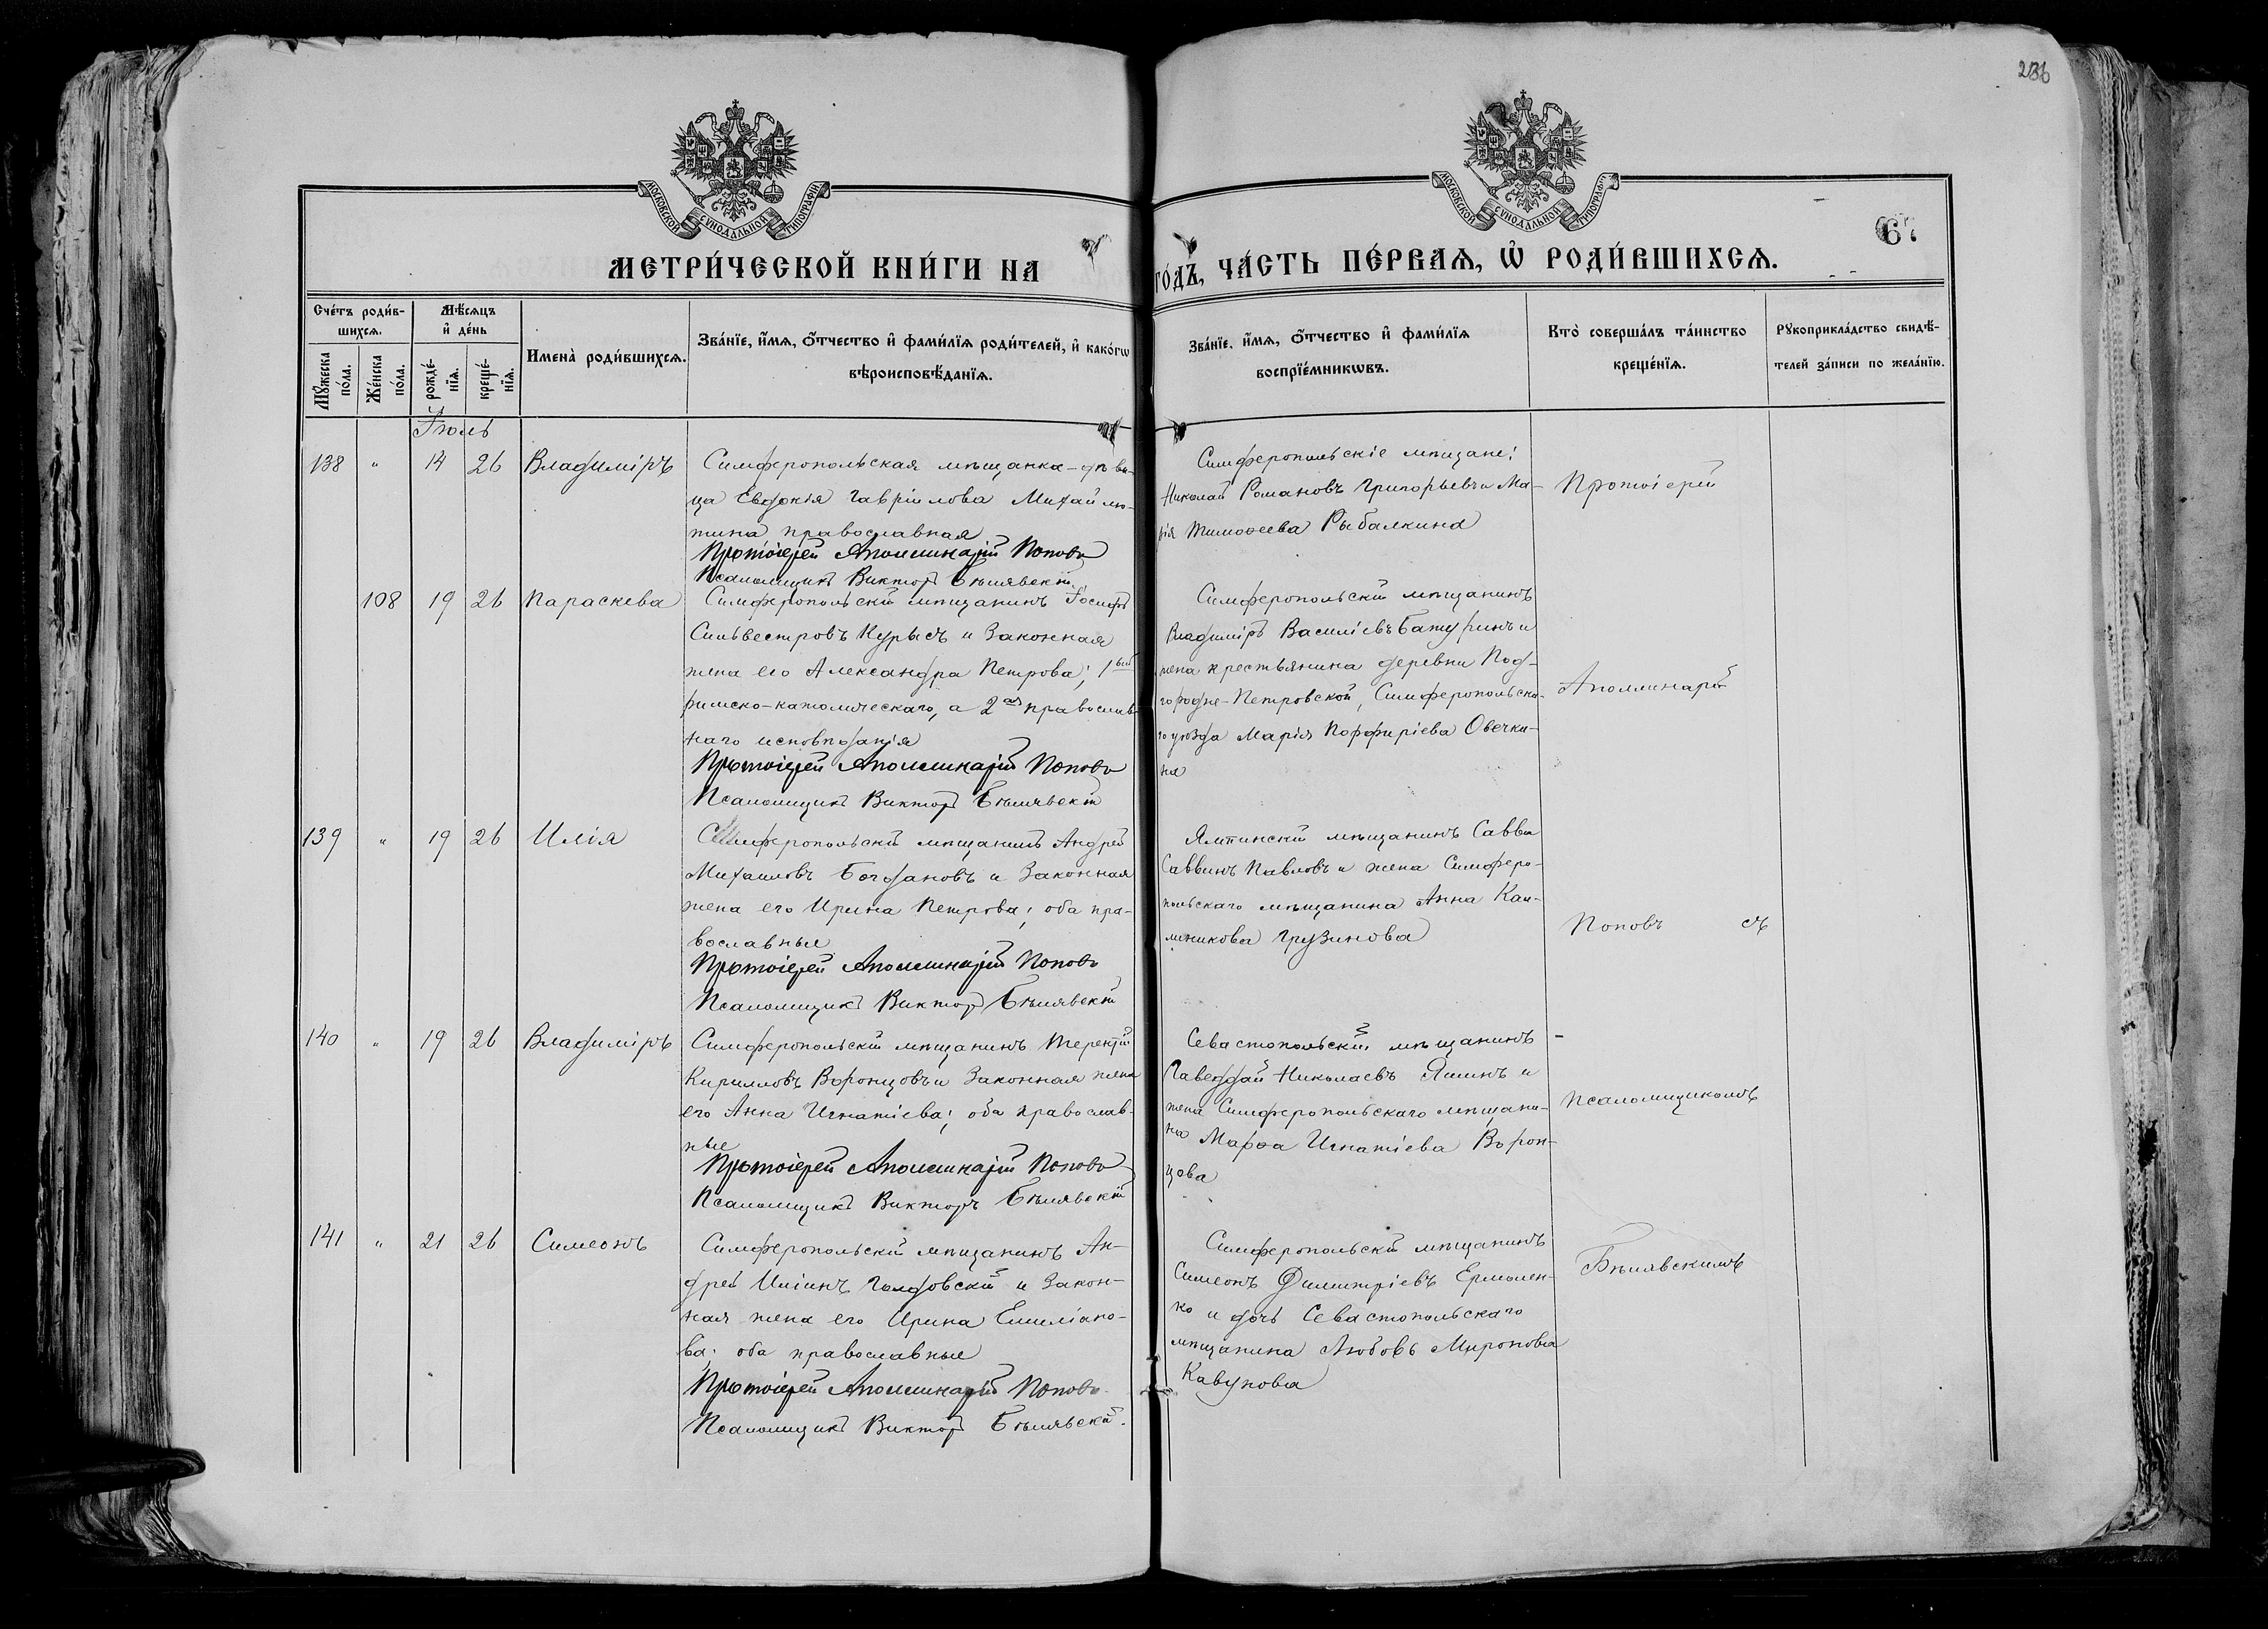 236
МОСКОВСКОЙ СУНОДАЛЬНОЙ ТИПОГРАФІИ
МОСКОВСКОЙ СУНОДАЛЬНОЙ ТИПОГРАФІИ
67
МЕТРИ́ЧЕСКОЙ КНИ́ГИ НА
ГО́ДЪ, ЧА́СТЬ ПЕ́РВАѦ, Ѡ҆ РОДИ́ВШИХСѦ.
Сче́тъ роди́в-
шихсѧ.
Мѣ́сѧцъ
и҆ де́нь
Мꙋ́жеска
по́ла.
Же́нска
по́ла.
рожде́-
нїѧ.
креще́-
нїѧ.
Имена̀ роди́вшихсѧ.
Зва́нїе, и҆́мѧ, ѻ҆́тчество и҆ фами́лїѧ роди́телей, и҆ како́гѡ
вѣроисповѣ́данїѧ.
Зва́нїе, и҆́мѧ, ѻ҆́тчество и҆ фами́лїѧ
воспрїе́мникѡвъ.
Кто̀ соверша́лъ та́инство
креще́нїѧ.
Рꙋкоприкла́дство свидѣ́-
телей за́писи по жела́нїю.
Іюль
138 " 14 26 Владиміръ
Симферопольская мѣщанка-дѣви-
ца Евдокія Гавріилова Михайлю-
тина, православная
Протоіерей Аполлинарій Поповъ
Псаломщикъ Викторъ Бѣлявскій
Симферопольскіе мѣщане:
Николай Романовъ Григорьевъ и Ма-
рія Тимоѳеева Рыбалкина
Протоіерей
108 19 26 Параскева
Симферопольскій мѣщанинъ Іосифъ
Сильвестровъ Курысъ и законная
жена его Александра Петрова; 1вый
римско-католическаго, а 2ая православ-
наго исповѣданія
Протоіерей Аполлинарій Поповъ
Псаломщикъ Викторъ Бѣлявскій
Симферопольскій мѣщанинъ
Владиміръ Василіевъ Батуринъ и
жена крестьянина деревни Под-
городне-Петровской, Симферопольска-
го уѣзда Марія Порфиріева Овечки-
на
Аполлинарій
139 " 19 26 Илія
Симферопольскій мѣщанинъ Андрей
Михаиловъ Богдановъ и законная
жена его Ирина Петрова; оба пра-
вославные
Протоіерей Аполлинарій Поповъ
Псаломщикъ Викторъ Бѣлявскій
Ялтинскій мѣщанинъ Савва
Саввинъ Павловъ и жена Симферо-
польскаго мѣщанина Анна Кал-
линикова Грузинова
Поповъ съ
140 " 19 26 Владиміръ
Симферопольскій мѣщанинъ Терентій
Кирилловъ Воронцовъ и законная жена
его Анна Игнатіева; оба православ-
ные
Протоіерей Аполлинарій Поповъ
Псаломщикъ Викторъ Бѣлявскій
Севастопольскій мѣщанинъ
Николаевъ Яшинъ и
жена Симферопольскаго мѣщани-
на Марѳа Игнатіева Ворон-
цова
Псаломщикомъ
141 " 21 26 Симеонъ
Симферопольскій мѣщанинъ Ан-
дрей Иліинъ Голдовскій и закон-
ная жена его Ирина Емиліано-
ва; оба православные
Протоіерей Аполлинарій Поповъ
Псаломщикъ Викторъ Бѣлявскій.
Симферопольскій мѣщанинъ
Симеонъ Димитріевъ Ермолен-
ко и дочь Севастопольскаго
мѣщанина Любовь Миронова
Кавунова
Бѣлявскимъ